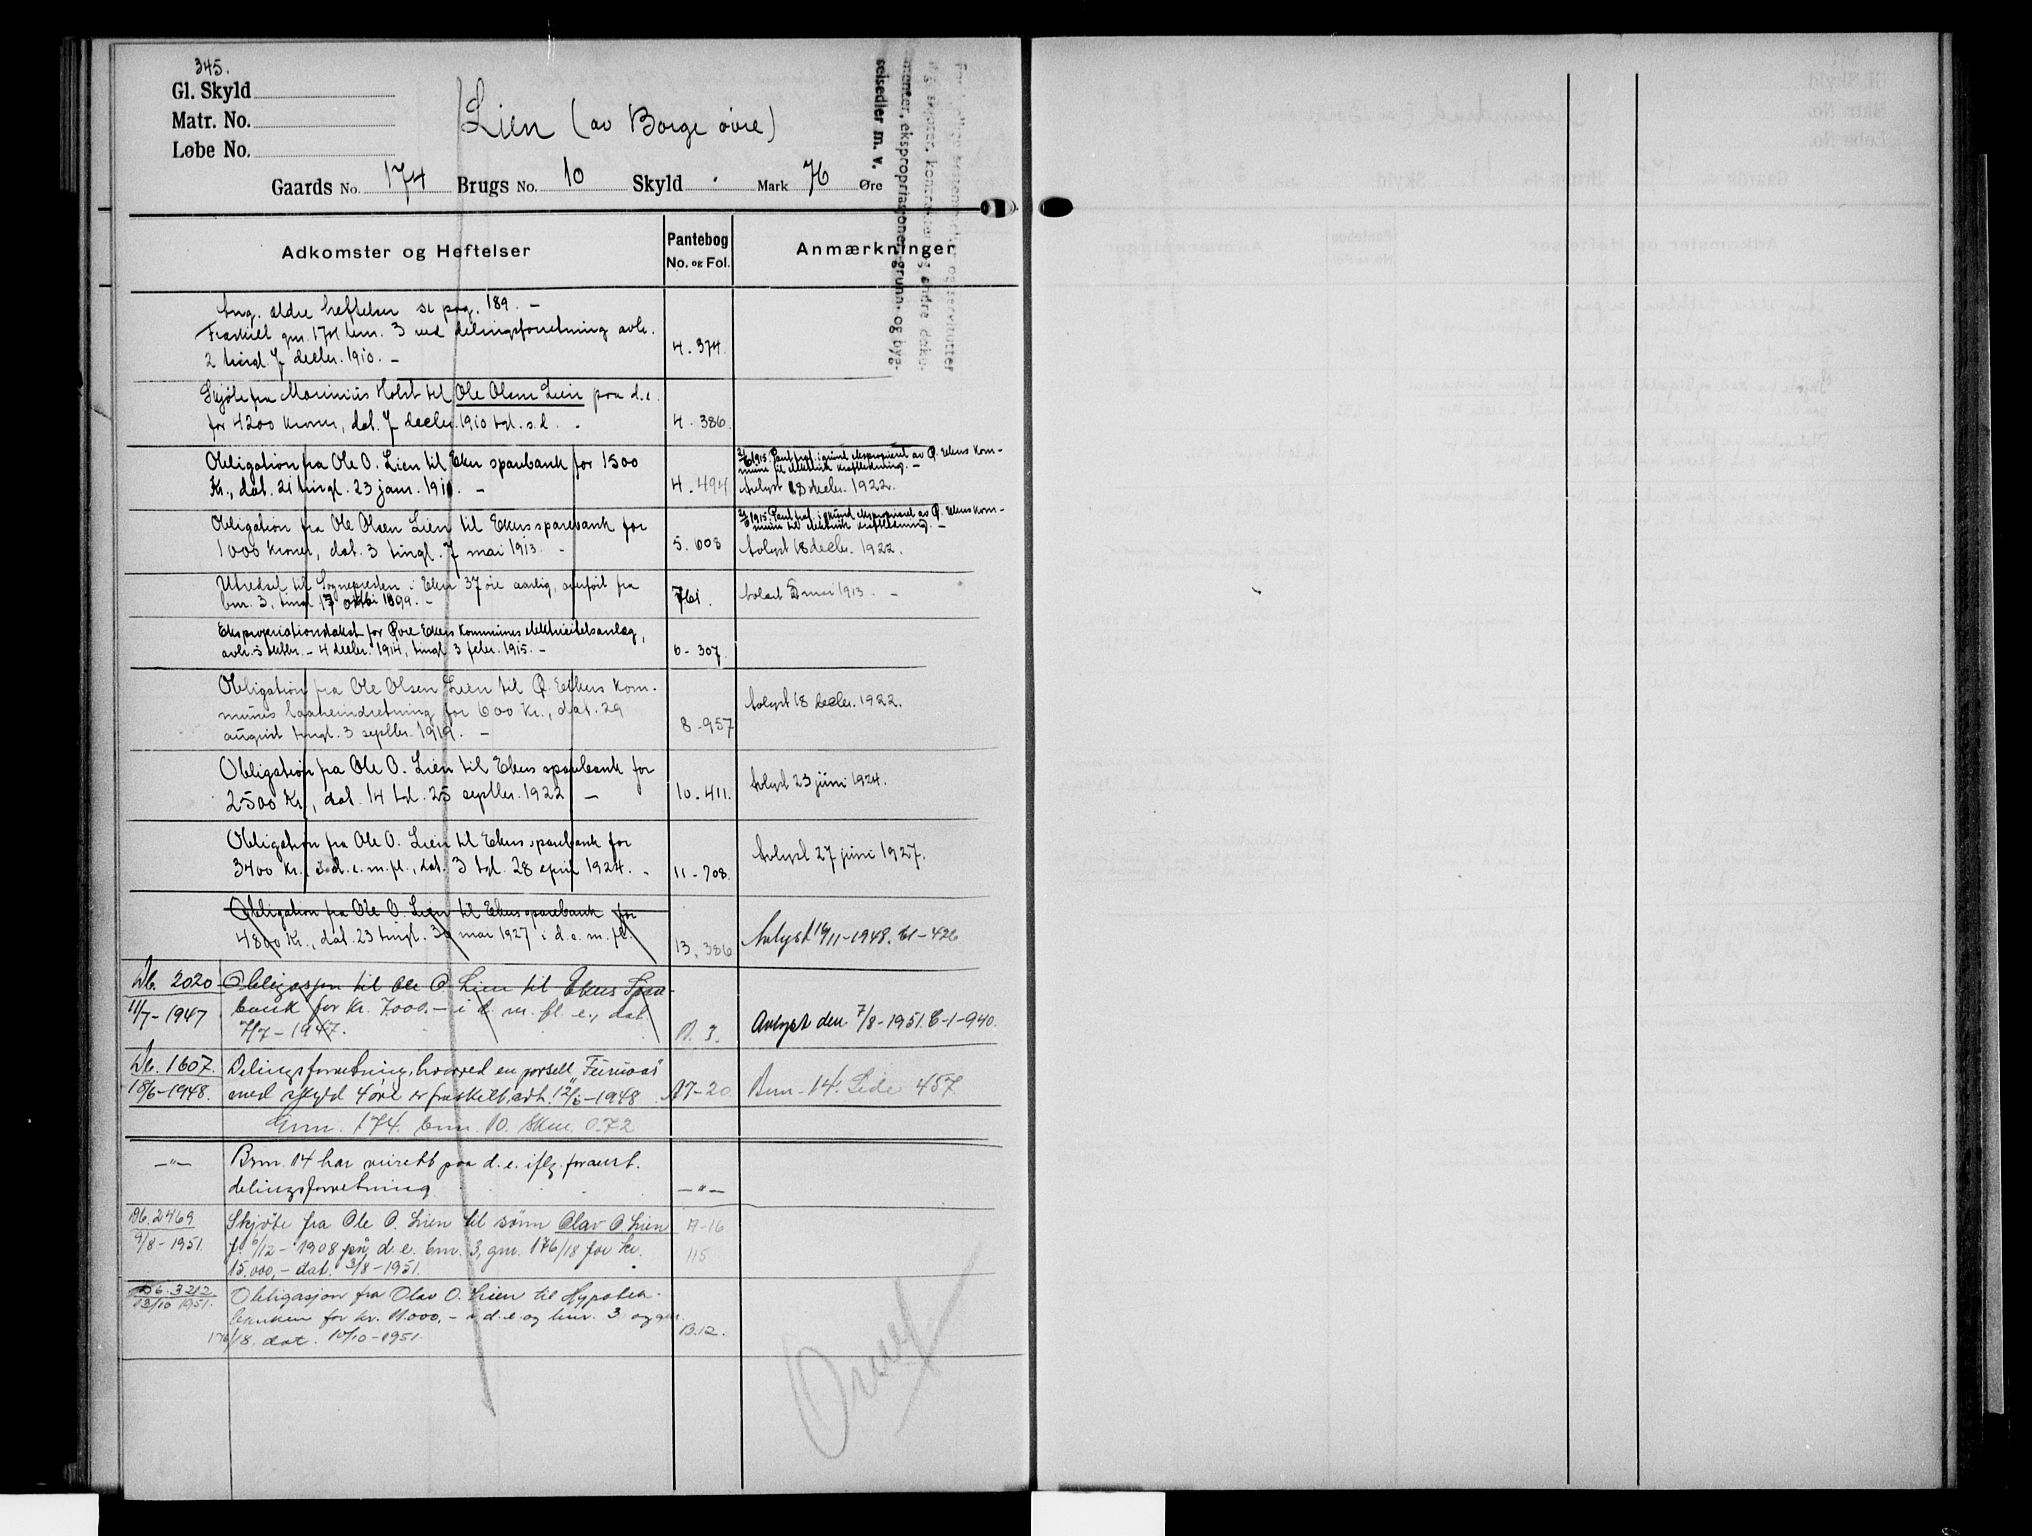 345.
Gl. Skyld
Matr. No.
Løbe No.
Lien (av Borge øvre)
Gaards No. 174 Brugs No. 10 Skyld . Mark 76 Øre
selsedler m. v.
Adkomster og Heftelser
Pantebog
No. og Fol.
Anmærkninger
Ang. ældre heftelser se pag. 189. —
Fraskilt gnr. 174 bnr. 3 ved delingsforretning avh.
2 tingl. 7 decbr. 1910. —
4. 374
Skjøte fra Marinius Holst til Ole Olsen Lien paa d.e.
for 4200 kroner, dat. 7 decbr. 1910 tgl. s.d. -
4. 386
Obligation fra Ole O. Lien til Eker sparebank for 1500
Kr., dat. 21 tingl. 23 jan. 1911. —
4. 494
1915 Pantfraf. i grund eksproprieret av Ø. Ekers kom-
mune til elektrisk kraftledning. —
Avlyst 18 decbr. 1922.
Obligation fra Ole Olsen Lien til Ekers sparebank for
1000 kroner, dat. 3 tingl. 7 mai 1913. -
5. 608
1915 Pantfraf. i grund eksproprieret av Ø. Ekers kom-
mune til elektrisk kraftledning. —
Avlyst 18 decbr. 1922.
Utredsel til Sognepresten i Eker 37 øre aarlig, overført fra
bnr. 3, tingl. 17 oktbr 1899. —
761.
mai 1913. —
Ekspropriationstakst for Øvre Ekers kommunes elektricitetsanlæg,
avh. 5 oktbr. - 4 decbr. 1914, tingl. 3 febr. 1915. —
6 - 307
Obligation fra Ole Olsen Lien til Ø. Eikers kom-
munes laaneindretning for 600 Kr., dat. 29
august tingl. 3 septbr. 1919. —
8 - 957
Avlyst 18 decbr. 1922.
Obligation fra Ole O. Lien til Ekers sparebank for
2500 Kr., dat. 14 tgl. 25 septbr. 1922 —
10. 411.
Avlyst 23 juni 1924.
Obligation fra Ole O. Lien til Ekers sparebank for
3400 Kr. i d.e. m.fl., dat. 3 tgl. 28 april 1924. -
11 - 708.
Avlyst 27 juni 1927.
Obligation fra Ole O. Lien til Ekers sparebank for
4800 Kr., dat. 23 tingl. 30 mai 1927 i d.e. m. fl.
13. 386
Avlyst 16/11-1948. - 426
Db. 2020
11/7-1947
Obligasjon til Ole O. Lien til Ekers Spare-
bank for Kr. 7000.— i d. m. fl. e., dat.
7/7 - 1947.
B. 3.
Avlyst den 7/8-1951. B-1-940.
Db. 1607.
18/6-1948.
Delingsforretning, hvorved en parsell "Furuaas"
med skyld 4 øre er fraskilt, avh. 12/6-1948
A7-20
Bnr. 14. Side 457.
Gnr. 174. bnr. 10. Skm. 0.72
—"—
Bnr. 14 har veirett paa d.e. iflg. foranst.
delingsforretning
—"—
Db. 2469
9/8-1951
Skjøte fra Ole O. Lien til sønn Olav O. Lien
f. 6/12-1908 på d.e. bnr. 3, gnr. 176/18 for kr.
15.000,- dat. 3/8-1951.
A-16
115
Db. 3212
13/10 1951.
Obligasjon fra Olav O. Lien til Hypotek-
banken for kr. 11.000,- i d.e. og bnr. 3 og gnr.
176/18. dat. 10/10-1951.
B.12.